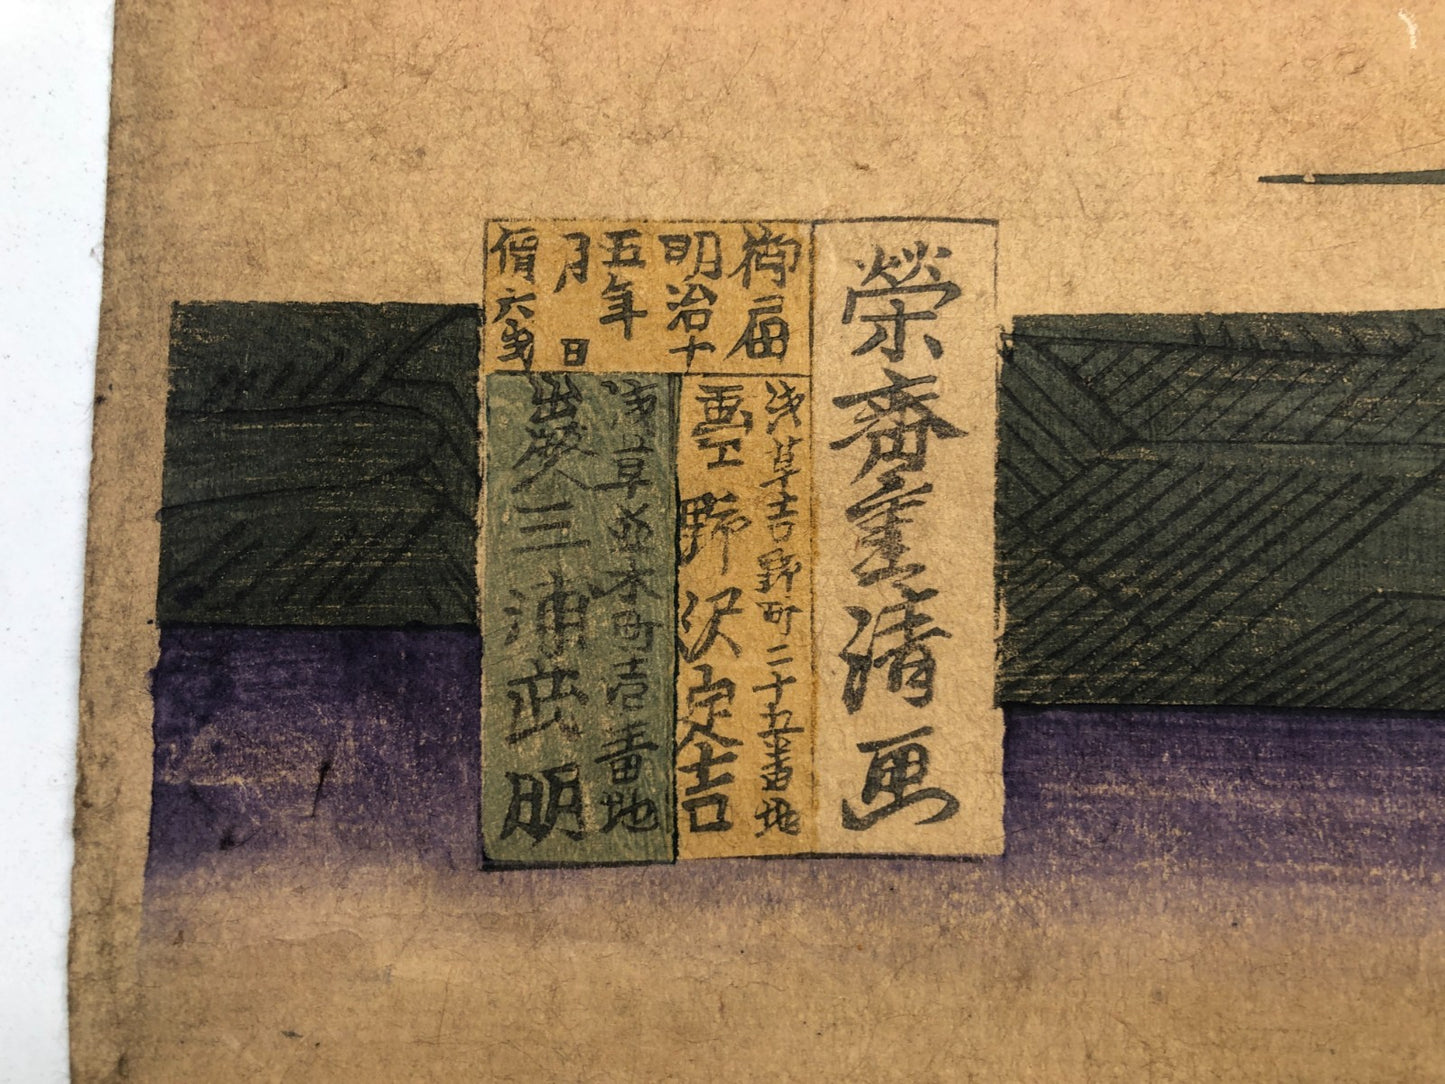 榮齋重清画
御届
明治十
五年
月 日
價六戔
浅草吉野町二十五番地
画工 野沢定吉
浅草並木町壱番地
出板人 三浦武明